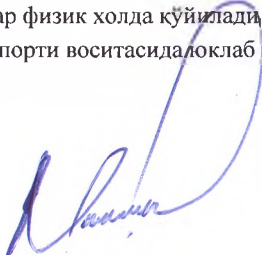 ар физик холда қўйилади
порти воситасида юклаб